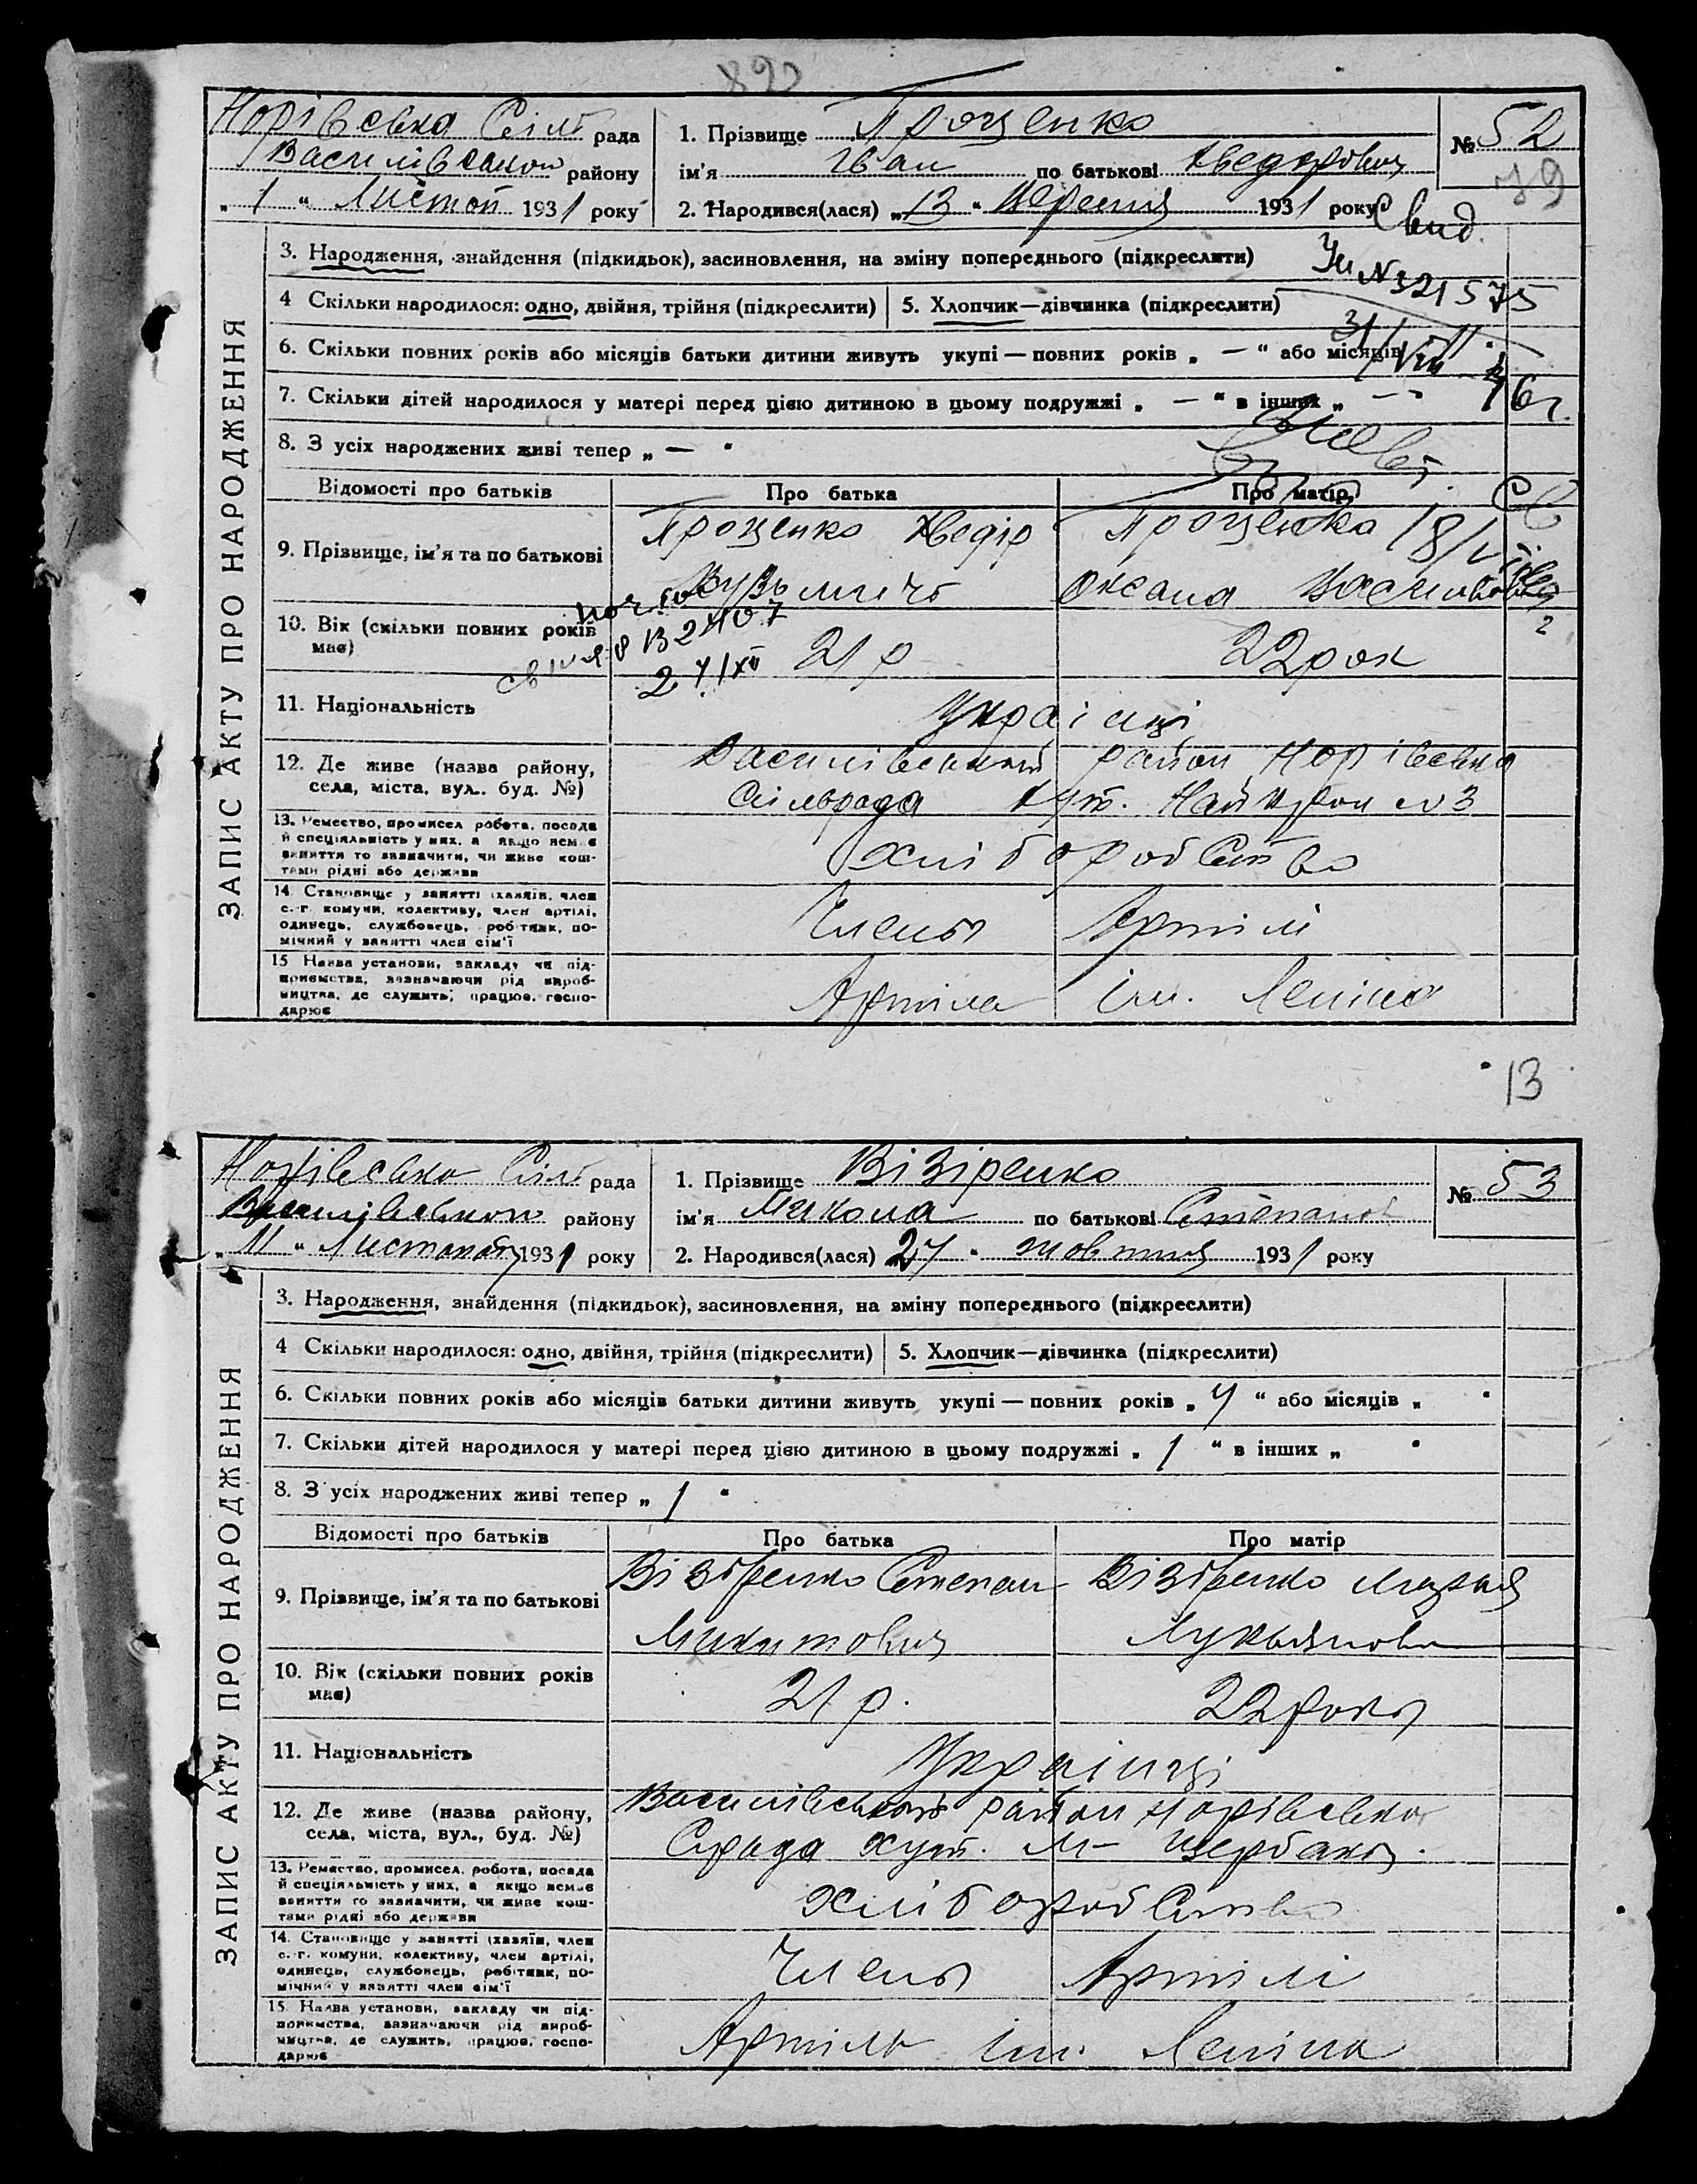 Норівська Сільрада
Василівського району
„ 1 “ Листоп 1931 року
1. Прізвище Проценко
ім'я Іван по батькові Хведорович
2. Народився(лася) „13“ Вересня 1931 року
№ 52
79
Свид.
№ 321575
ЗАПИС АКТУ ПРО НАРОДЖЕННЯ
3. Народження, знайдення (підкидьок), засиновлення, на зміну попереднього (підкреслити)
4 Скільки народилося: одно, двійня, трійня (підкреслити)
5. Хлопчик—дівчинка (підкреслити)
6. Скільки повних років або місяців батьки дитини живуть укупі — повних років „ — “ або місяців
7. Скільки дітей народилося у матері перед цією дитиною в цьому подружжі „ — “ в інших „ — “
8. З усіх народжених живі тепер „ — “
Відомості про батьків Про батька Про матір
9. Прізвище, ім'я та по батькові
Проценко Хведір
Кузьмич
Проценко
Оксана Васильовна
10. Вік (скільки повних років має)
21 р
22 рок
11. Національність
Українці
12. Де живе (назва району, села, міста, вул. буд. №)
Василівський район Норівська
Сільрада Хут. Найкрон №3
13. Ремество, промисел робота, посада й спеціяльність у них, а якщо немає заняття то зазначити, чи живе коштами рідні або держави
хліборобство
14. Становище у занятті (хазяїн, член с.-г. комуни, колективу, член артілі, одинець, службовець, робітник, помічний у занятті член сім'ї
Члены Артілі
15 Назва установи, закладу чи підприємства, зазначаючи рід виробництва, де служить, працює, господарює
Артіль ім. Леніна
13
Норівська Сільрада
Василівського району
„ 11 “ Листопаду 1931 року
1. Прізвище Візіренко
ім'я Микола по батькові Степанов
2. Народився(лася) 27 “ жовтня 1931 року
№ 53
ЗАПИС АКТУ ПРО НАРОДЖЕННЯ
3. Народження, знайдення (підкидьок), засиновлення, на зміну попереднього (підкреслити)
4 Скільки народилося: одно, двійня, трійня (підкреслити)
5. Хлопчик—дівчинка (підкреслити)
6. Скільки повних років або місяців батьки дитини живуть укупі — повних років „ 4 “ або місяців „ “
7. Скільки дітей народилося у матері перед цією дитиною в цьому подружжі „ 1 “ в інших „ “
8. З усіх народжених живі тепер „ 1 “
Відомості про батьків Про батька Про матір
9. Прізвище, ім'я та по батькові
Візіренко Степан
Микитович
Візіренко Мария
Лукьяновна
10. Вік (скільки повних років має)
21 р.
22 роки
11. Національність
Українці
12. Де живе (назва району, села, міста, вул., буд. №)
Василівського район Норівська
Срада хут. М- Щербаки.
13. Ремество, промисел, робота, посада й спеціяльність у них, а якщо немає заняття то зазначити, чи живе коштами рідні або держави
хліборобство
14. Становище у занятті (хазяїн, член с.-г. комуни, колективу, член артілі, одинець, службовець, робітник, помічний у занятті член сім'ї
Члены Артілі
15. Назва установи, закладу чи підприємства, зазначаючи рід виробництва, де служить, працює, господарює
Артиль ім. Леніна